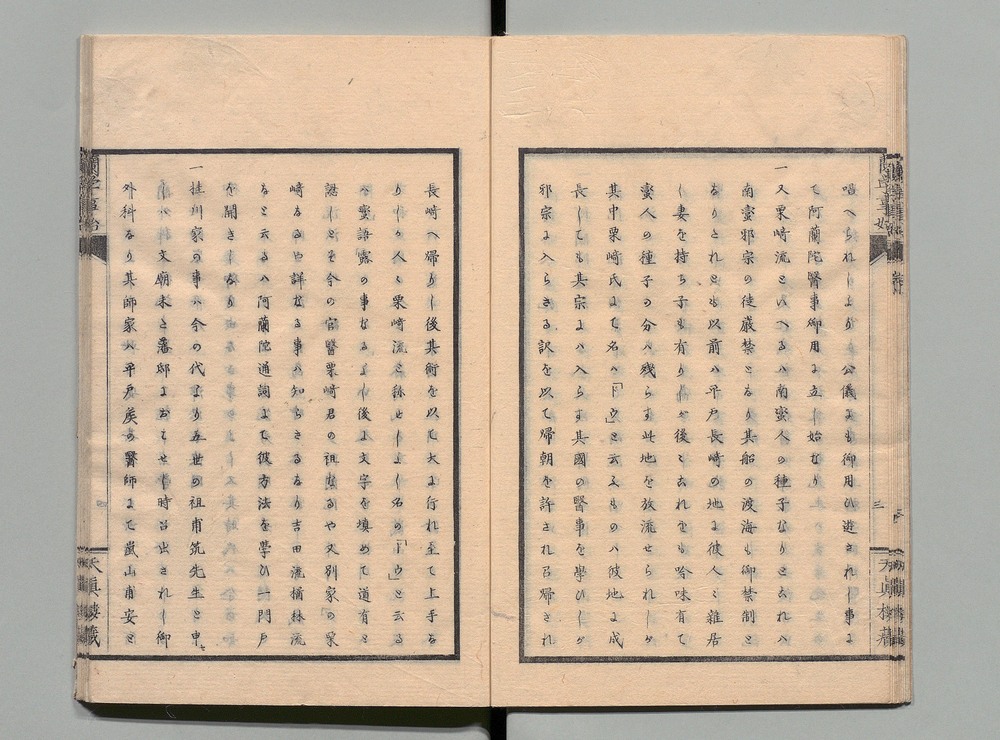 唱へられしより公儀よも御用ひ遊されし事よ
て阿蘭陀醫事御用よ立し始なり
一又栗崎流といへるハ南蛮人の種子なりと去れハ
南蛮邪宗の徒厳禁となり其船の渡海も御禁制と
なりされとも以前ハ平戸長崎の地よ彼人と雑居
し妻を持ち子も有りしか後ミ去れをも吟味有て
蛮人の種子の分ハ残らす此地を放流せられしか
其中栗崎氏よて名ハ「ドウ」と云ふもの八彼地よ成
長しても其宗よハ入らす其國の醫事を學ひしか
邪宗よ入らさる訳を以て帰朝を許され召帰され
長崎へ帰りし後其術を以て大よ行れ至て上手な
りしか人々栗崎流と称せしよし名の「ドウ」と云る
ハ蛮語露の事なるよし後よ文字を填めて道有と
認しとそ今の官醫栗崎君の祖なるや又別家の栗
崎なるや詳なる事ハ知らさるなり吉田流楢林流
なと云るハ阿蘭陀通詞よて彼方法を學ひ一門戸
を開きしなり
一桂川家の事ハ今の代より五世の祖甫筑先生と申せ
し人文廟未と藩邸よおわせし時召出されし御
外科なり其師家ハ平戸矦の醫師よて嵐山甫安と
蘭學事始
三
天眞樓蔵